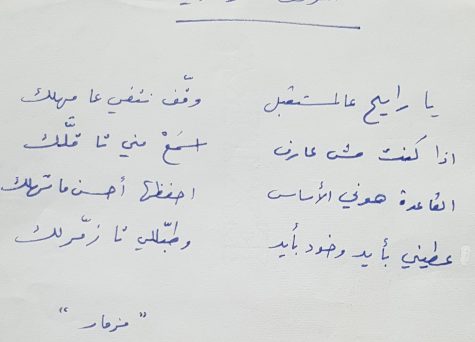 يا رايح عالمستقبل وقّف نتفي عا مهلك
اذا كنت مش عارف اسمعْ مني تا قلَّك
القاعدة هوني الأساس احفظها أحسن ما تهلك
عطيني بأيد وخود بأيد وطبّللي تا زمّرلك
"مزمار"